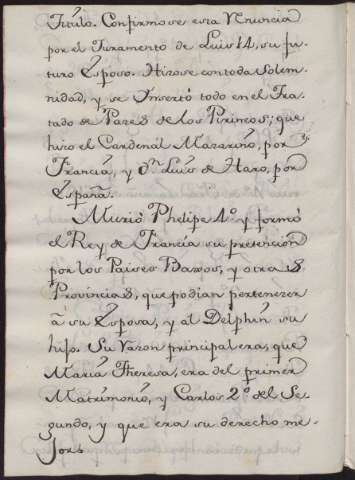 Titulo. Confirmose esta Renuncia
por el Juramento de Luis 14, su fu-
turo Esposo. Hizose con toda Solem-
nidad, y se Insertó todo en el Tra-
tado de Pazes de los Pirineos; que
hizo el Cardenál Mazarino, por
Francia, y Dn. Luis de Haro, por
España.
Murió Phelipe 4º y formó
el Rey de Francia su pretención
por los Paises Baxos, y otras
Provincias, que podian pertenezer
á su Esposa, y al Delphin su
hijo. Su razon principal era, que
Maria Theresa, era del primer
Matrimonio, y Carlos 2º del Se-
gundo, y que era su derecho me-
jor